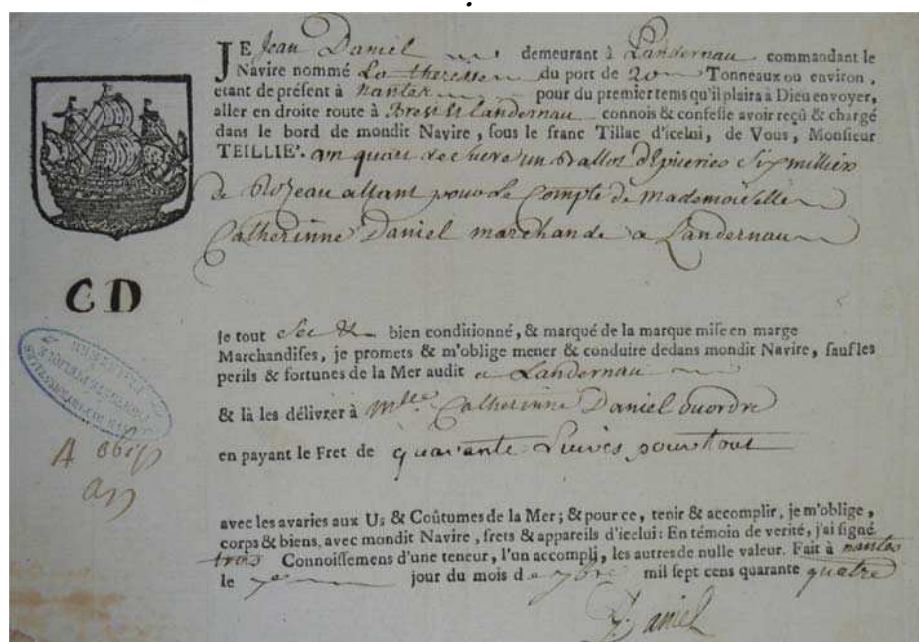 JE Jean Daniel demeurant à Landernau commandant le
Navire nommé La theresse du port de 20 Tonneaux ou environ,
etant de présent à nantes pour du premier tems qu'il plaira à Dieu envoyer,
aller en droite route à Landernau connois & confesse avoir reçû & chargé
dans le bord de mondit Navire, sous le franc Tillac d'icelui, de Vous, Monsieur
TEILLIE'. un quart de sucre un Ballot d'Epiceries Six milliers
de Rozeau allant pour Le Compte de mademoiselle
Catherinne Daniel marchande a Landernau
CD
le tout Sec & bien conditionné, & marqué de la marque mise en marge
Marchandises, je promets & m'oblige mener & conduire dedans mondit Navire, sauf les
perils & fortunes de la Mer audit a Landernau
& là les délivrer à Mlle Catherinne Daniel ou ordre
en payant le Fret de quarante Livres pour tout
avec les avaries aux Us & Coûtumes de la Mer; & pour ce, tenir & accomplir, je m'oblige,
corps & biens, avec mondit Navire, frets & appareils d'icelui: En témoin de verité, j'ai signé
trois Connoissemens d'une teneur, l'un accompli, les autres de nulle valeur. Fait à nantes
le 7e jour du mois de 7bre mil sept cens quarante quatre
Daniel